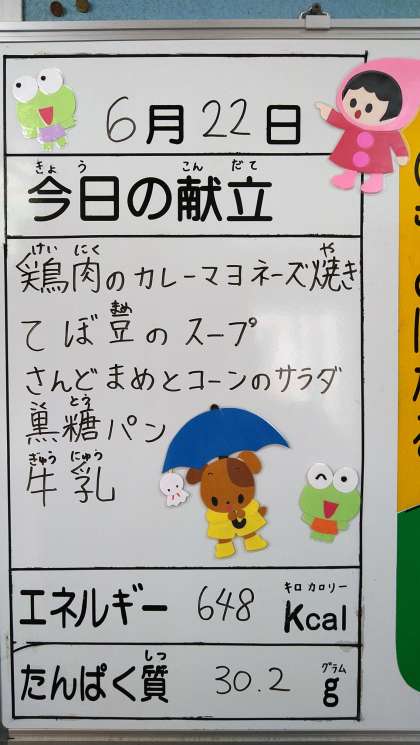 6月22日
きょう こん だて
今日の献立
けい にく や
鶏肉のカレーマヨネーズ焼き
まめ
てぼ豆のスープ
さんどまめとコーンのサラダ
こく とう
黒糖パン
ぎゅう にゅう
牛乳
キロ カロリー
エネルギー 648 Kcal
しつ グラム
たんぱく質 30.2 g